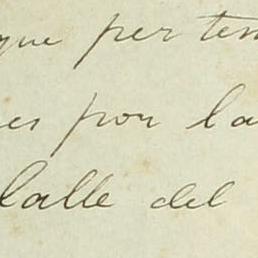 que per tem
es por la
lalle del